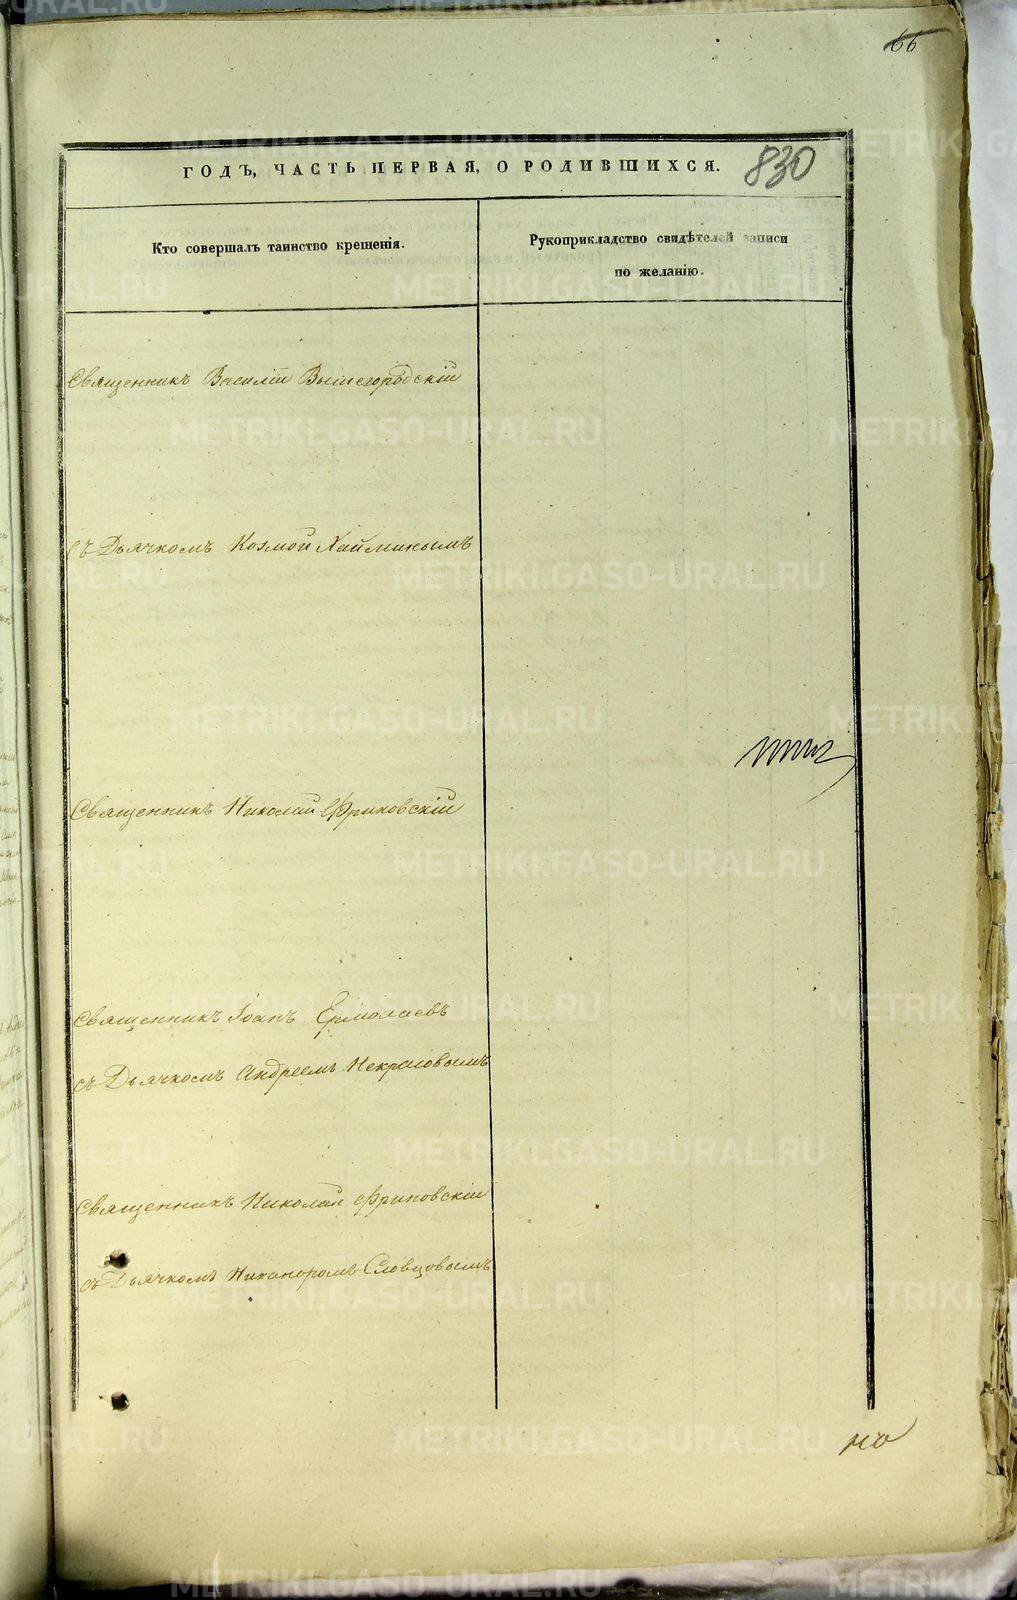 66
ГОДЪ, ЧАСТЬ ПЕРВАЯ, О РОДИВШИХСЯ. 830
Кто совершалъ таинство крещенія.
Рукоприкладство свидѣтелей записи
по желанію.
Священникъ Василій Вышегородскій
съ Дьячкомъ Козмой
Священникъ Николай Фриковскій
Священникъ Іоанъ Ермолаевъ
съ Дьячкомъ Андреемъ Некрасовымъ
Священникъ Николай Фриковскій
съ Дьячкомъ Никаноромъ Словцовымъ
METRIKI.GASO-URAL.RU